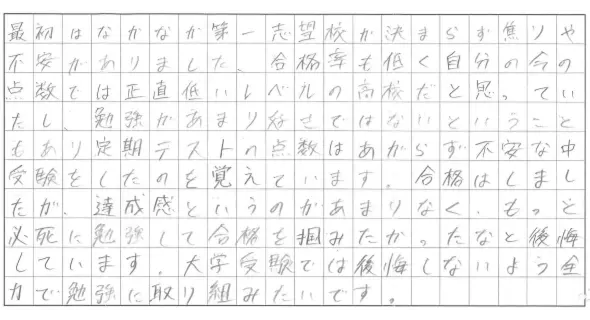 最初はなかなか第一志望校が決まらず焦りや
不安がありました。合格率も低く自分の今の
点数では正直低いレベルの高校だと思ってい
たし、勉強があまり好きではないということ
もあり定期テストの点数はあがらず不安な中
受験をしたのを覚えています。合格はしまし
たが、達成感というのがあまりなく、もっと
必死に勉強して合格を掴みたかったなと後悔
しています。大学受験では後悔しないよう全
力で勉強に取り組みたいです。